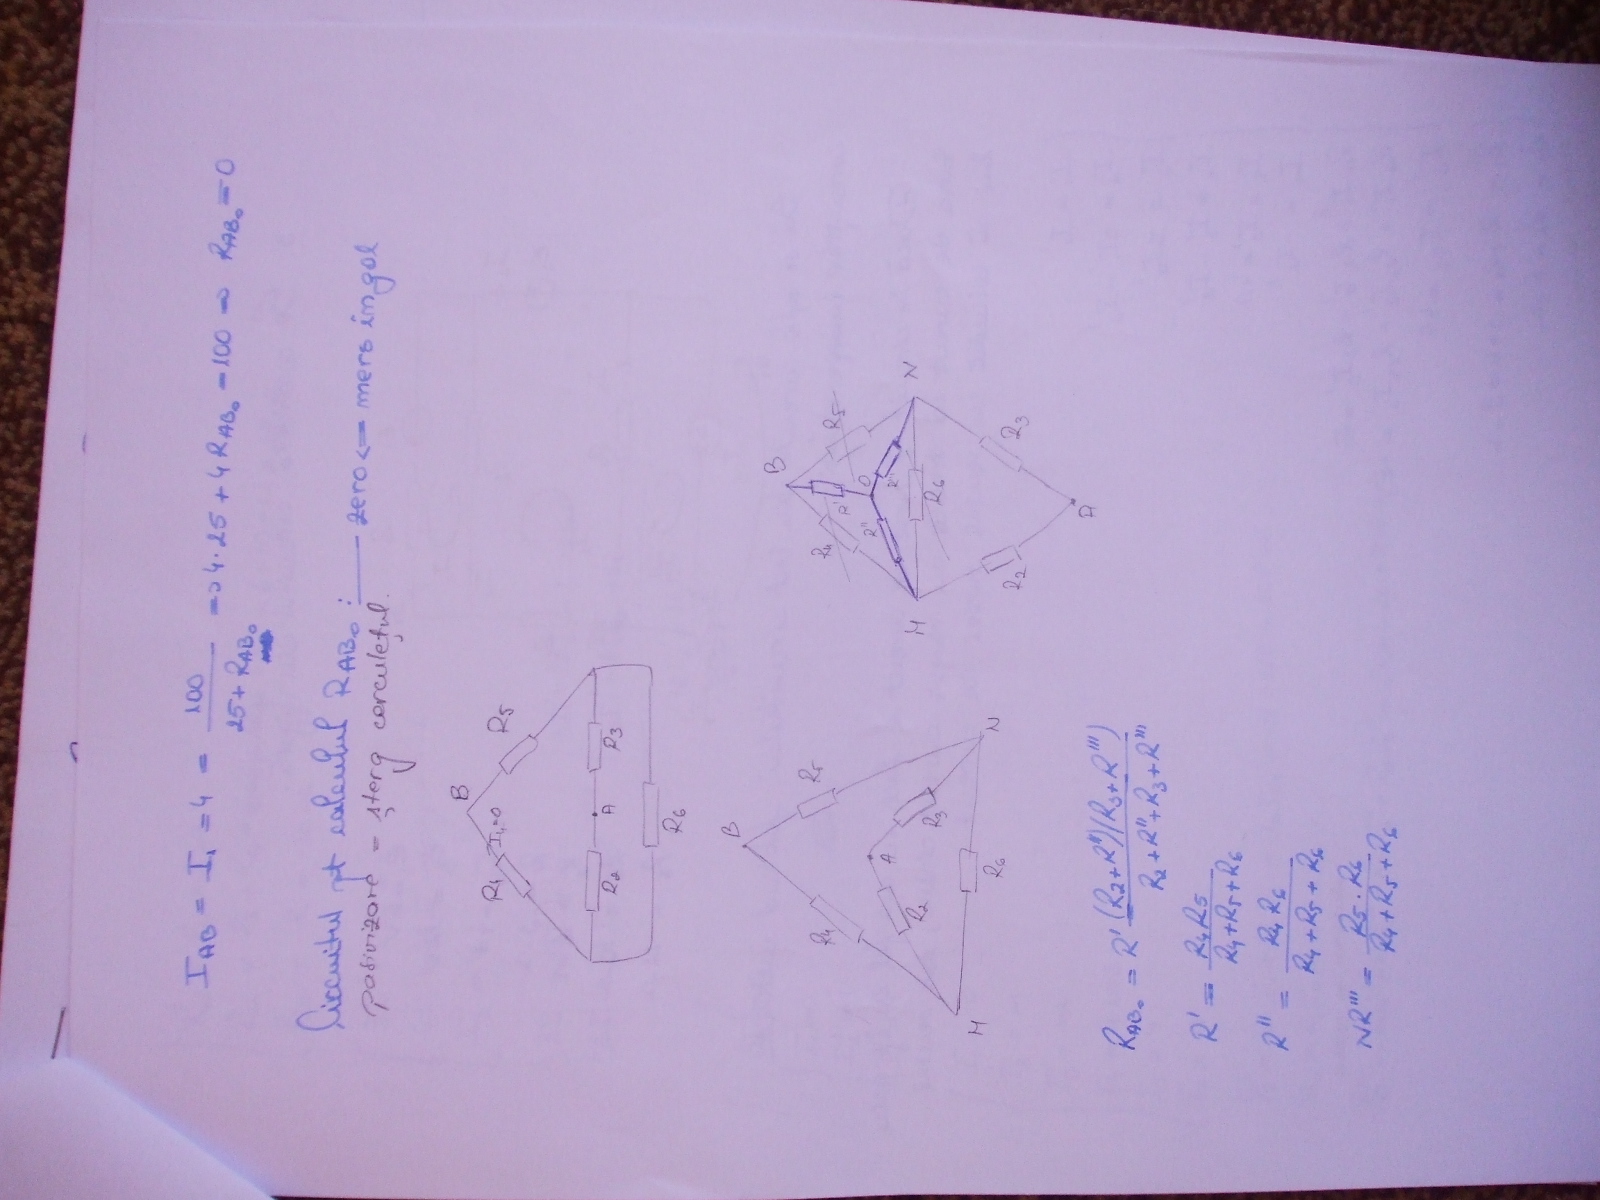 I_AB = I_1 = 4 = 100 / (25 + R_AB₀) => 4·25 + 4R_AB₀ = 100 => R_AB₀ = 0
Circuitul pt calculul R_AB₀ : — zero <= mers in gol
pasivizare = șterg cerculețul.
B
R4 I4=0 R5
R2 A R3
R6
B
R4 R5
A
R2 R3
M R6 N
B
R4 R' R5
R'' O R'''
M R6 N
R2 R3
A
R_AB₀ = R' (R2+R'')(R3+R''') / (R2+R''+R3+R''')
R' = R4R5 / (R4+R5+R6)
R'' = R4 R6 / (R4+R5+R6)
NR''' = R5·R6 / (R4+R5+R6)